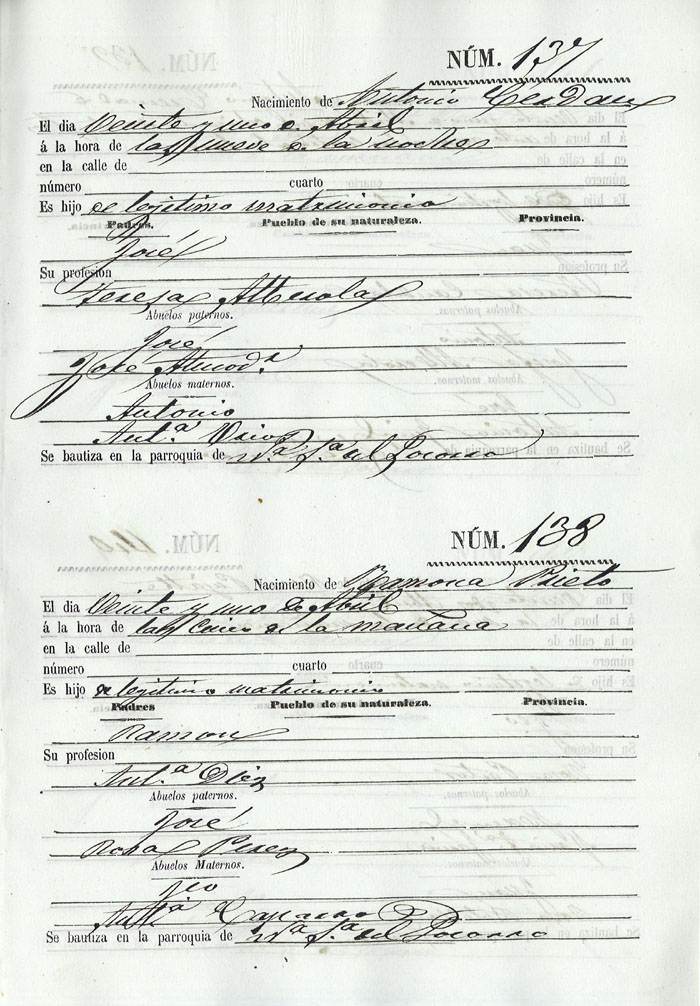 NÚM. 137
Nacimiento de Antonio
El dia Veinte y uno de Abril
á la hora de las nueve de la noche
en la calle de
número cuarto
Es hijo de legitimo matrimonio
Padres. Pueblo de su naturaleza. Provincia.
José
Su profesion
Teresa Alberola
Abuelos paternos.
José
José
Abuelos maternos.
Antonio
Ant.ª
Se bautiza en la parroquia de N.ª S.ª del Socorro
NÚM. 138
Nacimiento de Ramona Prieto
El dia Veinte y uno de Abril
á la hora de las Cinco de la mañana
en la calle de
número cuarto
Es hijo de legitimo matrimonio
Padres Pueblo de su naturaleza. Provincia.
Ramon
Su profesion
Ant.ª Diez
Abuelos paternos.
José
Rosa Perez
Abuelos Maternos.
Se bautiza en la parroquia de N.ª S.ª del Socorro